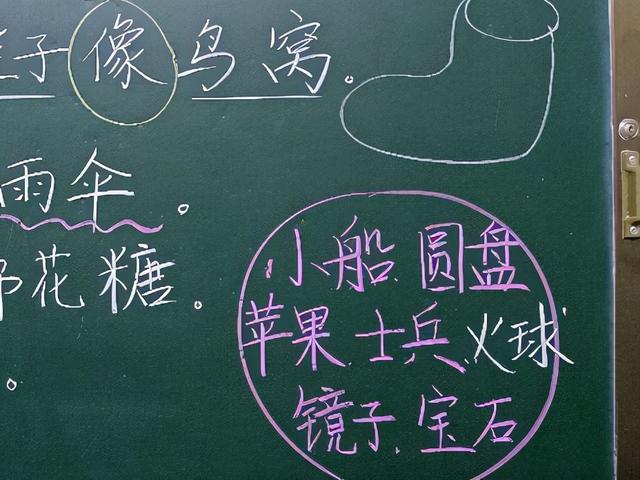 子像鸟窝。
雨伞。
花糖。
。
小船 圆盘
苹果 士兵 火球
镜子 宝石